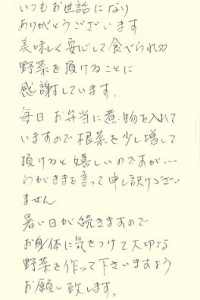 いつもお世話になり
ありがとうございます
美味しく安心して食べられる
野菜を頂けることに
感謝しています。
毎日お弁当に煮物を入れて
いますので根菜を少し増して
頂けると嬉しいのですが…
わがままを言って申し訳ござい
ません
暑い日が続きますので
お身体に気をつけて大切な
野菜を作って下さいますよう
お願い致します。